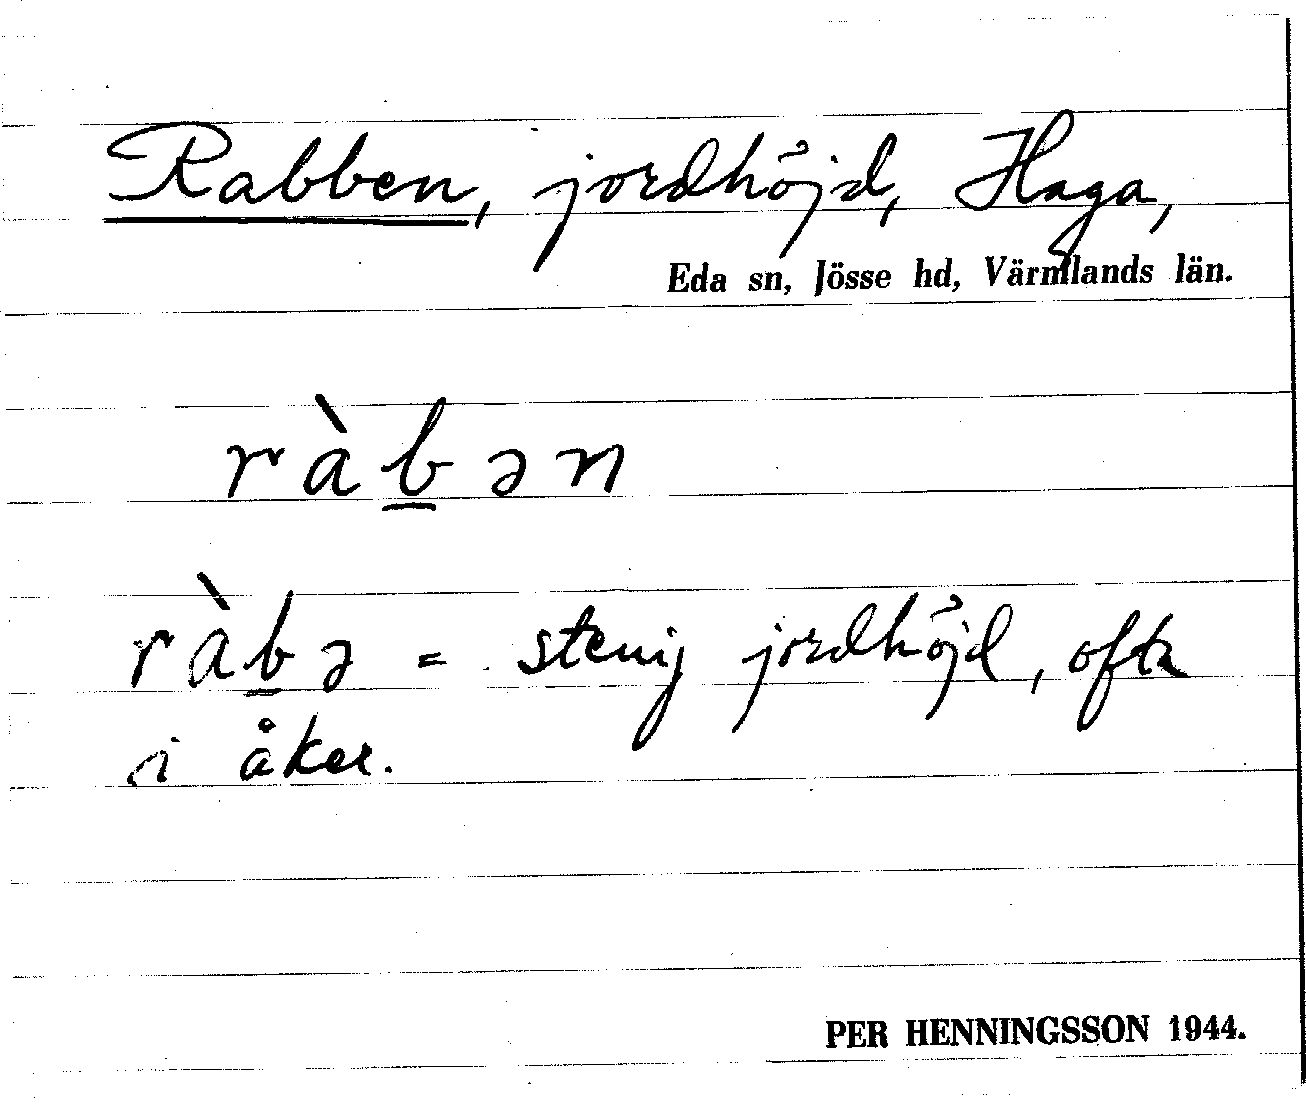 Rabben, jordhöjd, Haga,
Eda sn, Jösse hd, Värmlands län.
ràb̲ən
ràb̲ə = stenig jordhöjd, ofta
i åker.
PER HENNINGSSON 1944.